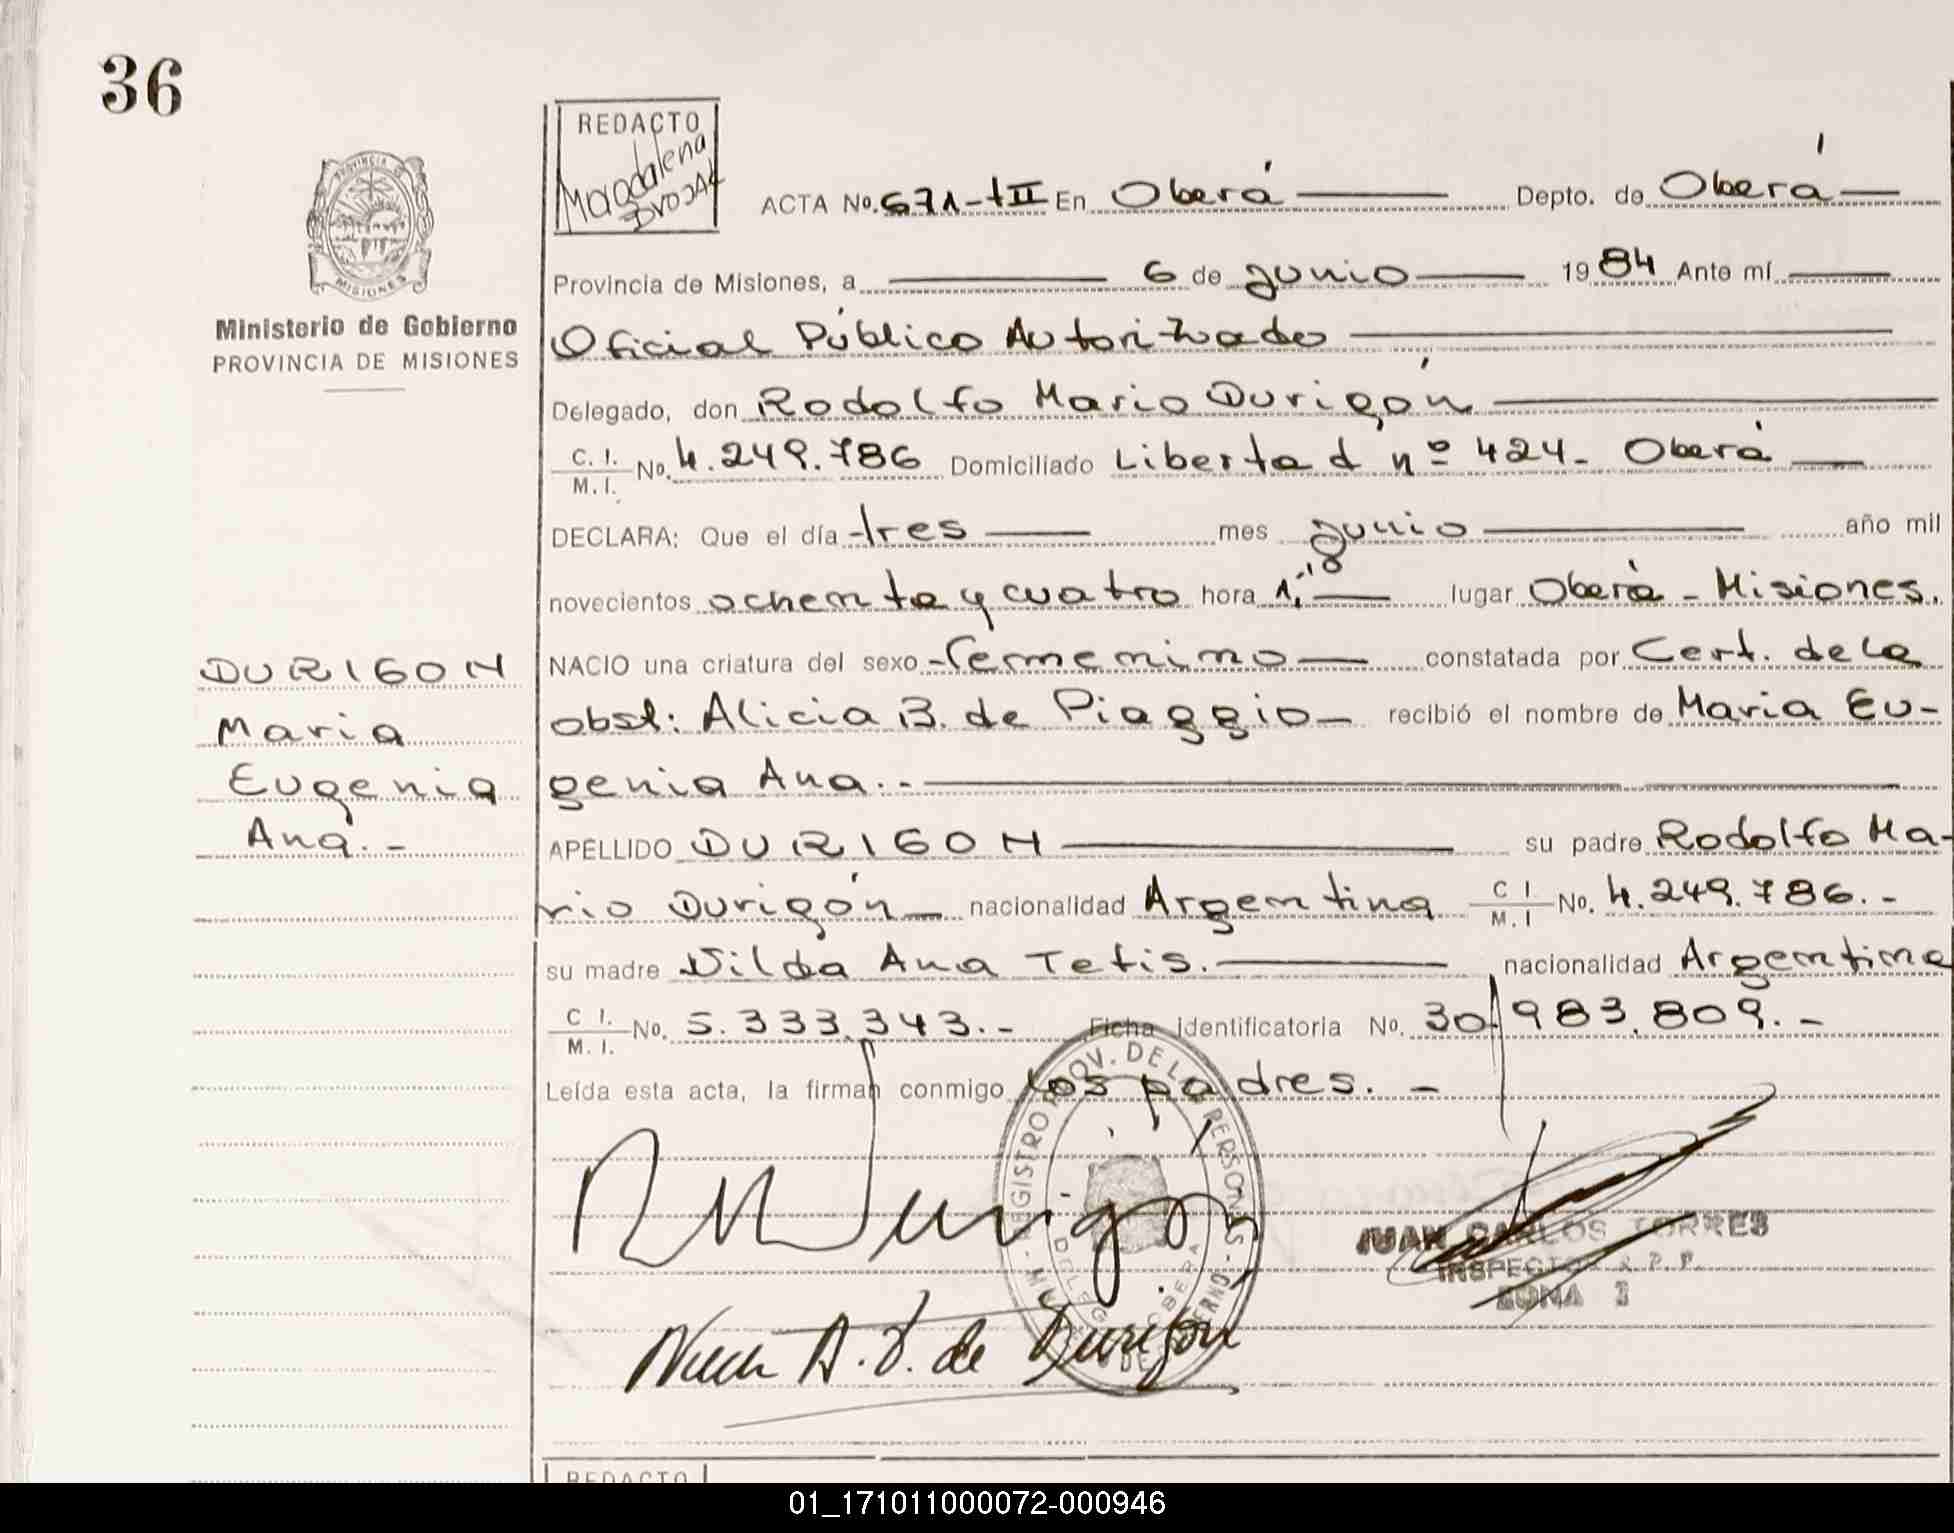 36
REDACTO
Magdalena
ACTA No. 671-tII En Oberá Depto. de Oberá
Provincia de Misiones, a 6 de junio 1984 Ante mí
Ministerio de Gobierno
PROVINCIA DE MISIONES
Oficial Público Autorizado
Delegado, don Rodolfo Mario Durigón
C. I. M. I. No. 4.249.786 Domiciliado Libertad nº 424- Oberá
DECLARA: Que el día tres mes junio año mil
novecientos ochenta y cuatro hora 1,10 lugar Oberá - Misiones.
NACIO una criatura del sexo femenino constatada por Cert. de la
obst: Alicia B. de Piaggio recibió el nombre de Maria Eu-
genia Ana.-
DURIGON
Maria
Eugenia
Ana.-
APELLIDO DURIGON su padre Rodolfo Ma-
rio Durigón nacionalidad Argentina C I M. I No. 4.249.786.-
su madre Nilda Ana Tetis. nacionalidad Argentina
C I. M. I. No. 5.333.343.- Ficha identificatoria No. 30.983.809.-
Leída esta acta, la firman conmigo los padres.-
REGISTRO PROV. DE LAS PERSONAS
JUAN CARLOS TORRES
INSPECTOR R.P.P.
ZONA
A. T. de Durigón
REDACTO
01_171011000072-000946